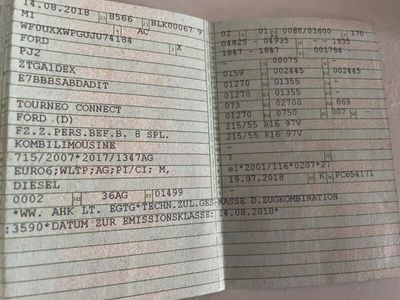 14.08.2018 8566 BLK00067 9
M1 AC
WF0UXXWPGUJU74184
FORD
PJ2
ZTGA1DEX
E7BBBSABDADIT
TOURNEO CONNECT
FORD (D)
FZ.Z.PERS.BEF.B. 8 SPL.
KOMBILIMOUSINE
715/2007*2017/1347AG
EURO6;WLTP;AG;PI/CI; M,
DIESEL
0002 36AG 01499
*WW. AHK LT. EGTG*TECHN.ZUL.GES-MASSE D.ZUGKOMBINATION
:3590*DATUM ZUR EMISSIONSKLASSE: 14.08.2018*
02 01 0088/03600 170
04825 - 04935 -- - 1835
1847 - 1847 001784 -
00075
0159 002445 002445
01270 01355 -
01270 01355 -
073 02700 069
01270 0750 007
215/55 R16 97V
215/55 R16 97V
-
7
e1*2001/116*0207*27
19.07.2018 K FC654171